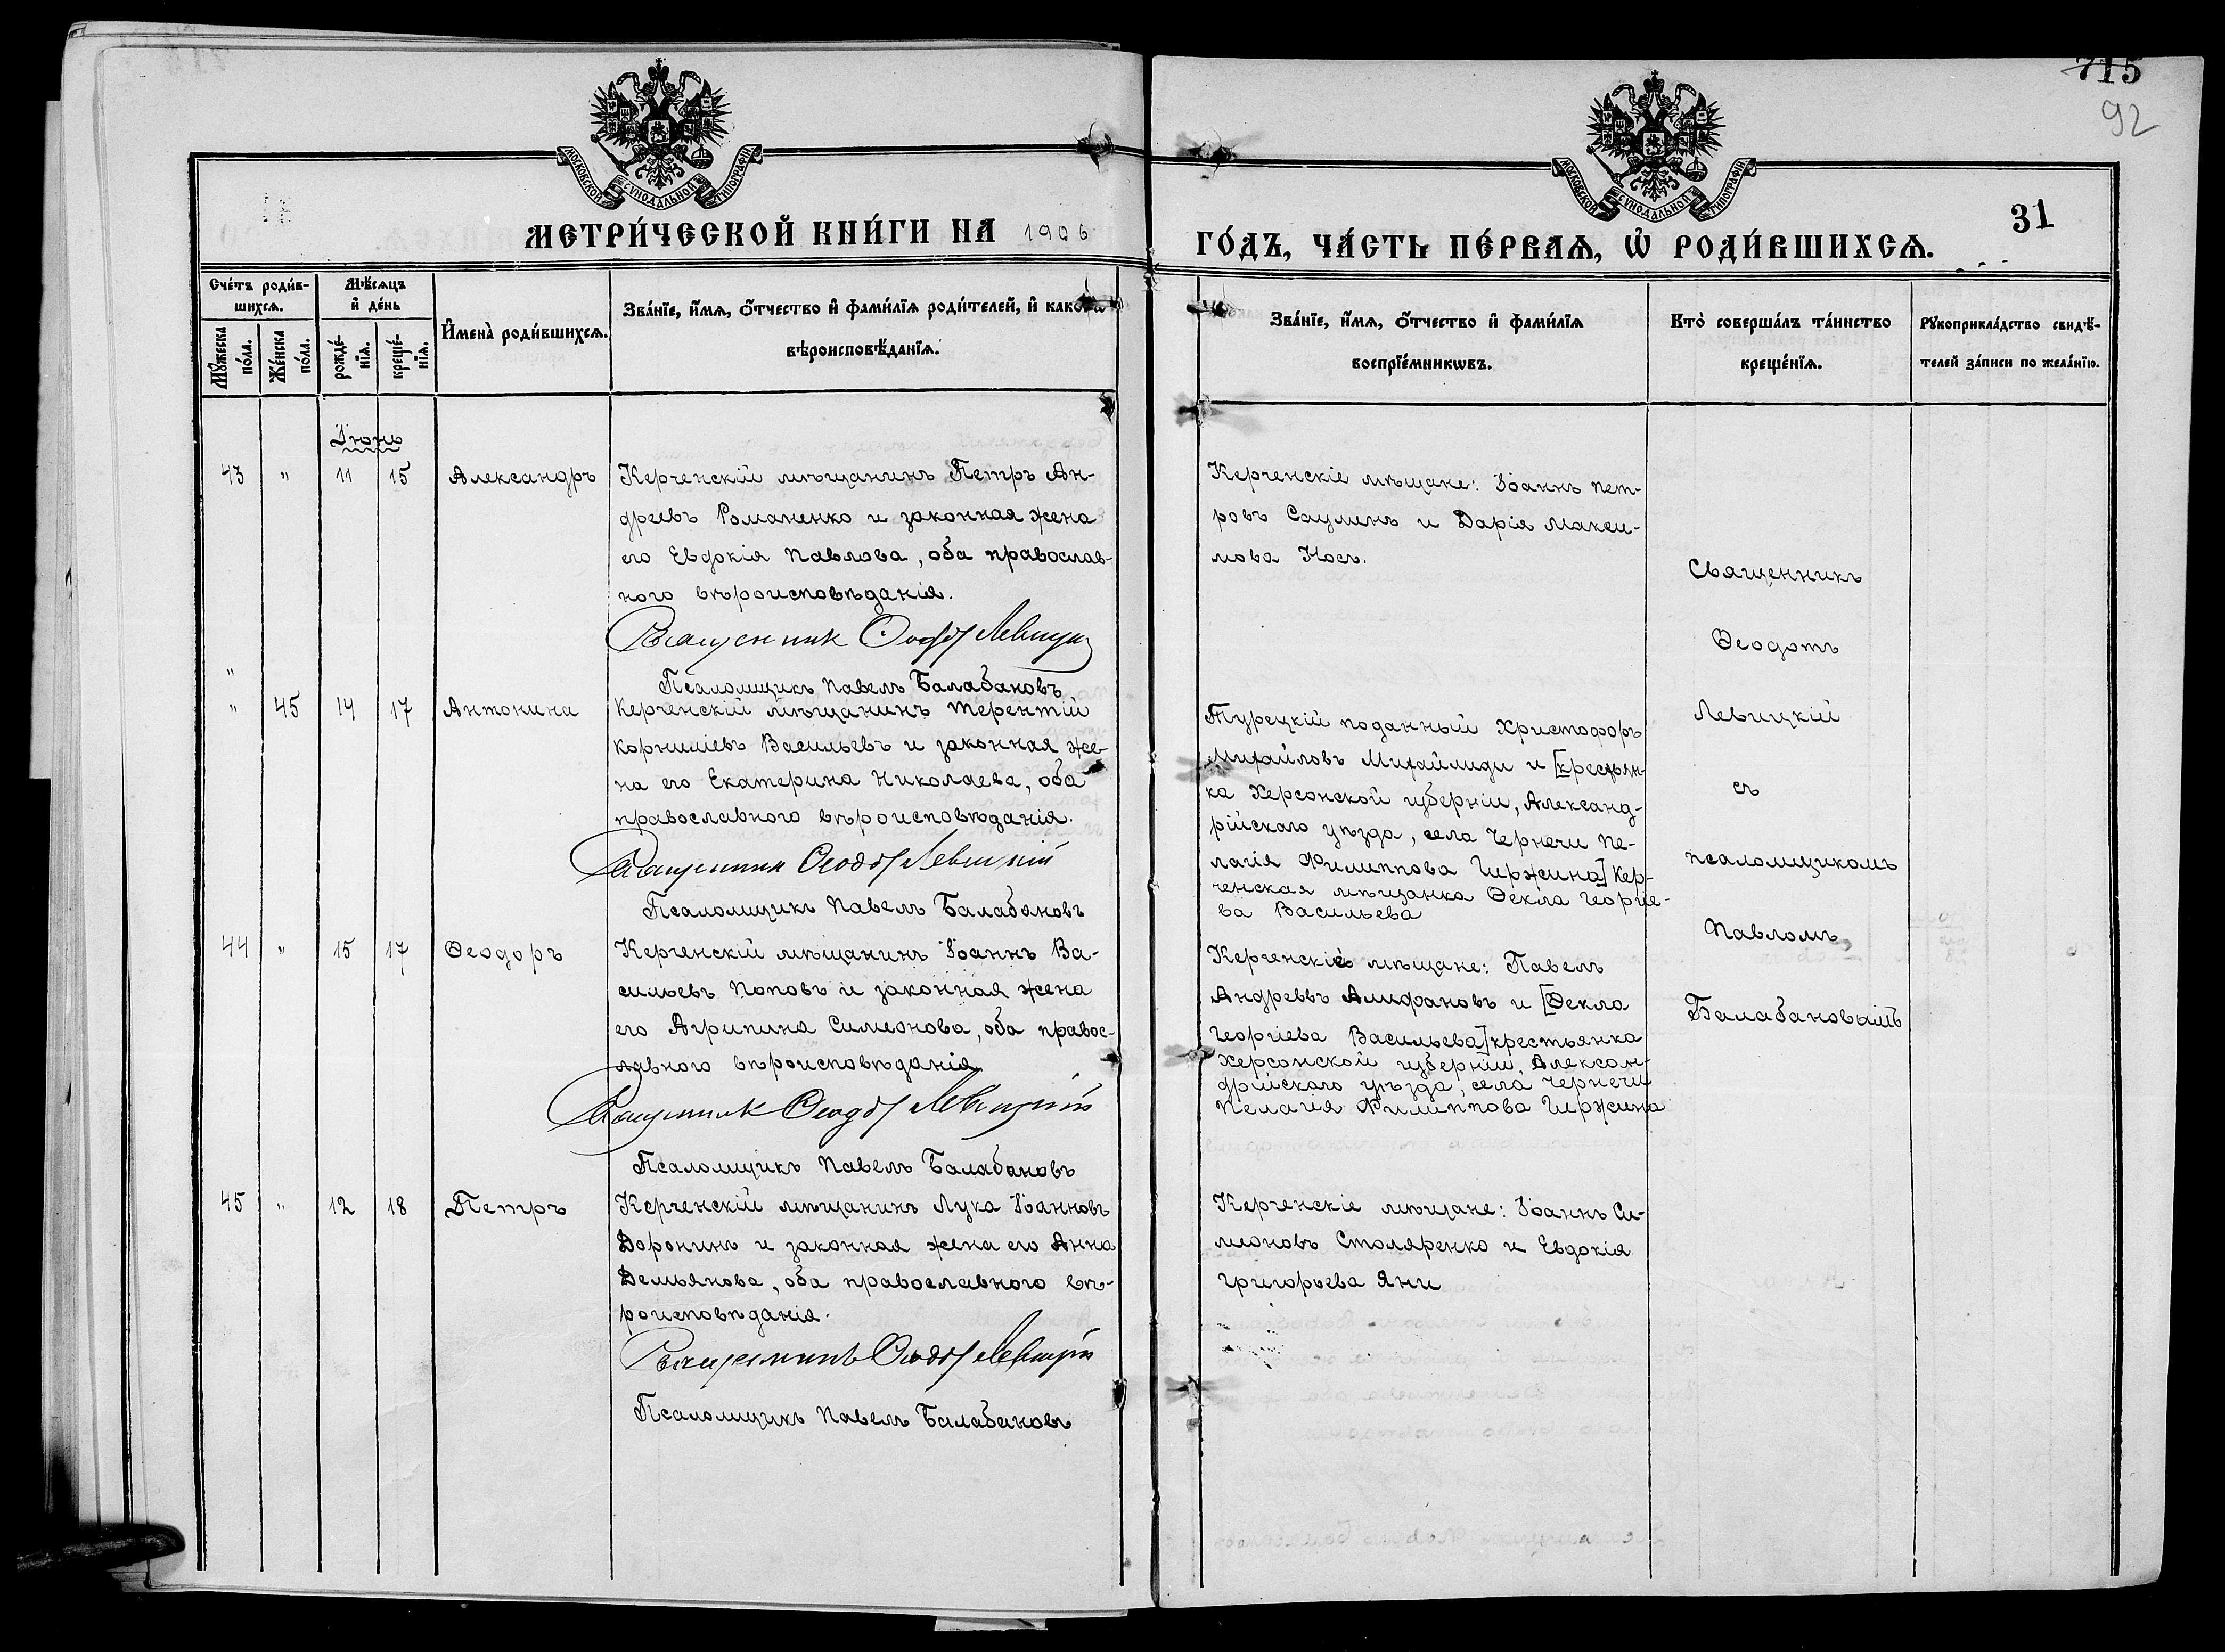 715
92
МОСКОВСКОЙ СѴНОДАЛЬНОЙ ТИПОГРАФІИ
МОСКОВСКОЙ СѴНОДАЛЬНОЙ ТИПОГРАФІИ
МЕТРИ́ЧЕСКОЙ КНИ́ГИ НА 1906
ГО́ДЪ, ЧА́СТЬ ПЕ́РВАѦ, Ѡ РОДИ́ВШИХСѦ.
31
Сче́тъ роди́в-
шихсѧ.
Мѣ́сѧцъ
и҆ де́нь
Мꙋ́жеска
по́ла.
Же́нска
по́ла.
рожде́-
нїѧ.
креще́-
нїѧ.
И҆мена̀ роди́вшихсѧ.
Зва́нїе, и҆́мѧ, ѻ҆́тчество и҆ фами́лїѧ роди́телей, и҆ како́гѡ
вѣроисповѣ́данїѧ.
Зва́нїе, и҆́мѧ, ѻ҆́тчество и҆ фами́лїѧ
воспрїе́мникѡвъ.
Кто̀ соверша́лъ та́инство
креще́нїѧ.
Рꙋкоприкла́дство свидѣ́-
телей за́писи по жела́нїю.
Іюнь
43 " 11 15 Александръ
Керченскій мѣщанинъ Петръ Ан-
дреевъ Романенко и законная жена
его Евдокія Павлова, оба православ-
ного вѣроисповѣданія.
Священник Ѳеодот Левицкій
Псаломщикъ Павелъ Балабановъ
Керченскіе мѣщане: Іоаннъ Пет-
ровъ Саулинъ и Дарія Макси-
мова Носъ.
"
" 45 14 17 Антонина
Керченскій мѣщанинъ Терентій
Корниліевъ Васильевъ и законная же-
на его Екатерина Николаева, оба
православного вѣроисповѣданія.
Священник Ѳеодот Левицкій
Псаломщикъ Павелъ Балабановъ
Турецкій поданный Христофоръ
Михайловъ Михайлиди и [крестьян-
ка Херсонской губерніи, Александ-
рійскаго уѣзда, села Чернечи Пе-
лагія Филиппова Гиржина] Кер-
ченская мѣщанка Ѳекла Георгіе-
ва Васильева
44 " 15 17 Ѳеодоръ
Керченскій мѣщанинъ Іоаннъ Ва-
сильевъ Поповъ и законная жена
его Агрипина Симеонова, оба правос-
лавного вѣроисповѣданія.
Священник Ѳеодот Левицкій
Псаломщикъ Павелъ Балабановъ
Керченскіе мѣщане: Павелъ
Андреевъ Алифановъ и [Ѳекла
Георгіева Васильева] крестьянка
Херсонской губерніи, Алексан-
дрійскаго уѣзда, села Чернечи
Пелагія Филиппова Гиржина
45 " 12 18 Петръ
Керченскій мѣщанинъ Лука Іоанновъ
Доронинъ и законная жена его Анна
Демьянова, оба православного вѣ-
роисповѣданія.
Священникъ Ѳеодот Левицкій
Псаломщикъ Павелъ Балабановъ
Керченскіе мѣщане: Іоаннъ Си-
меоновъ Столяренко и Евдокія
Григорьева Яни
Священникъ
Ѳеодотъ
Левицкій
съ
псаломщикомъ
Павломъ
Балабановымъ